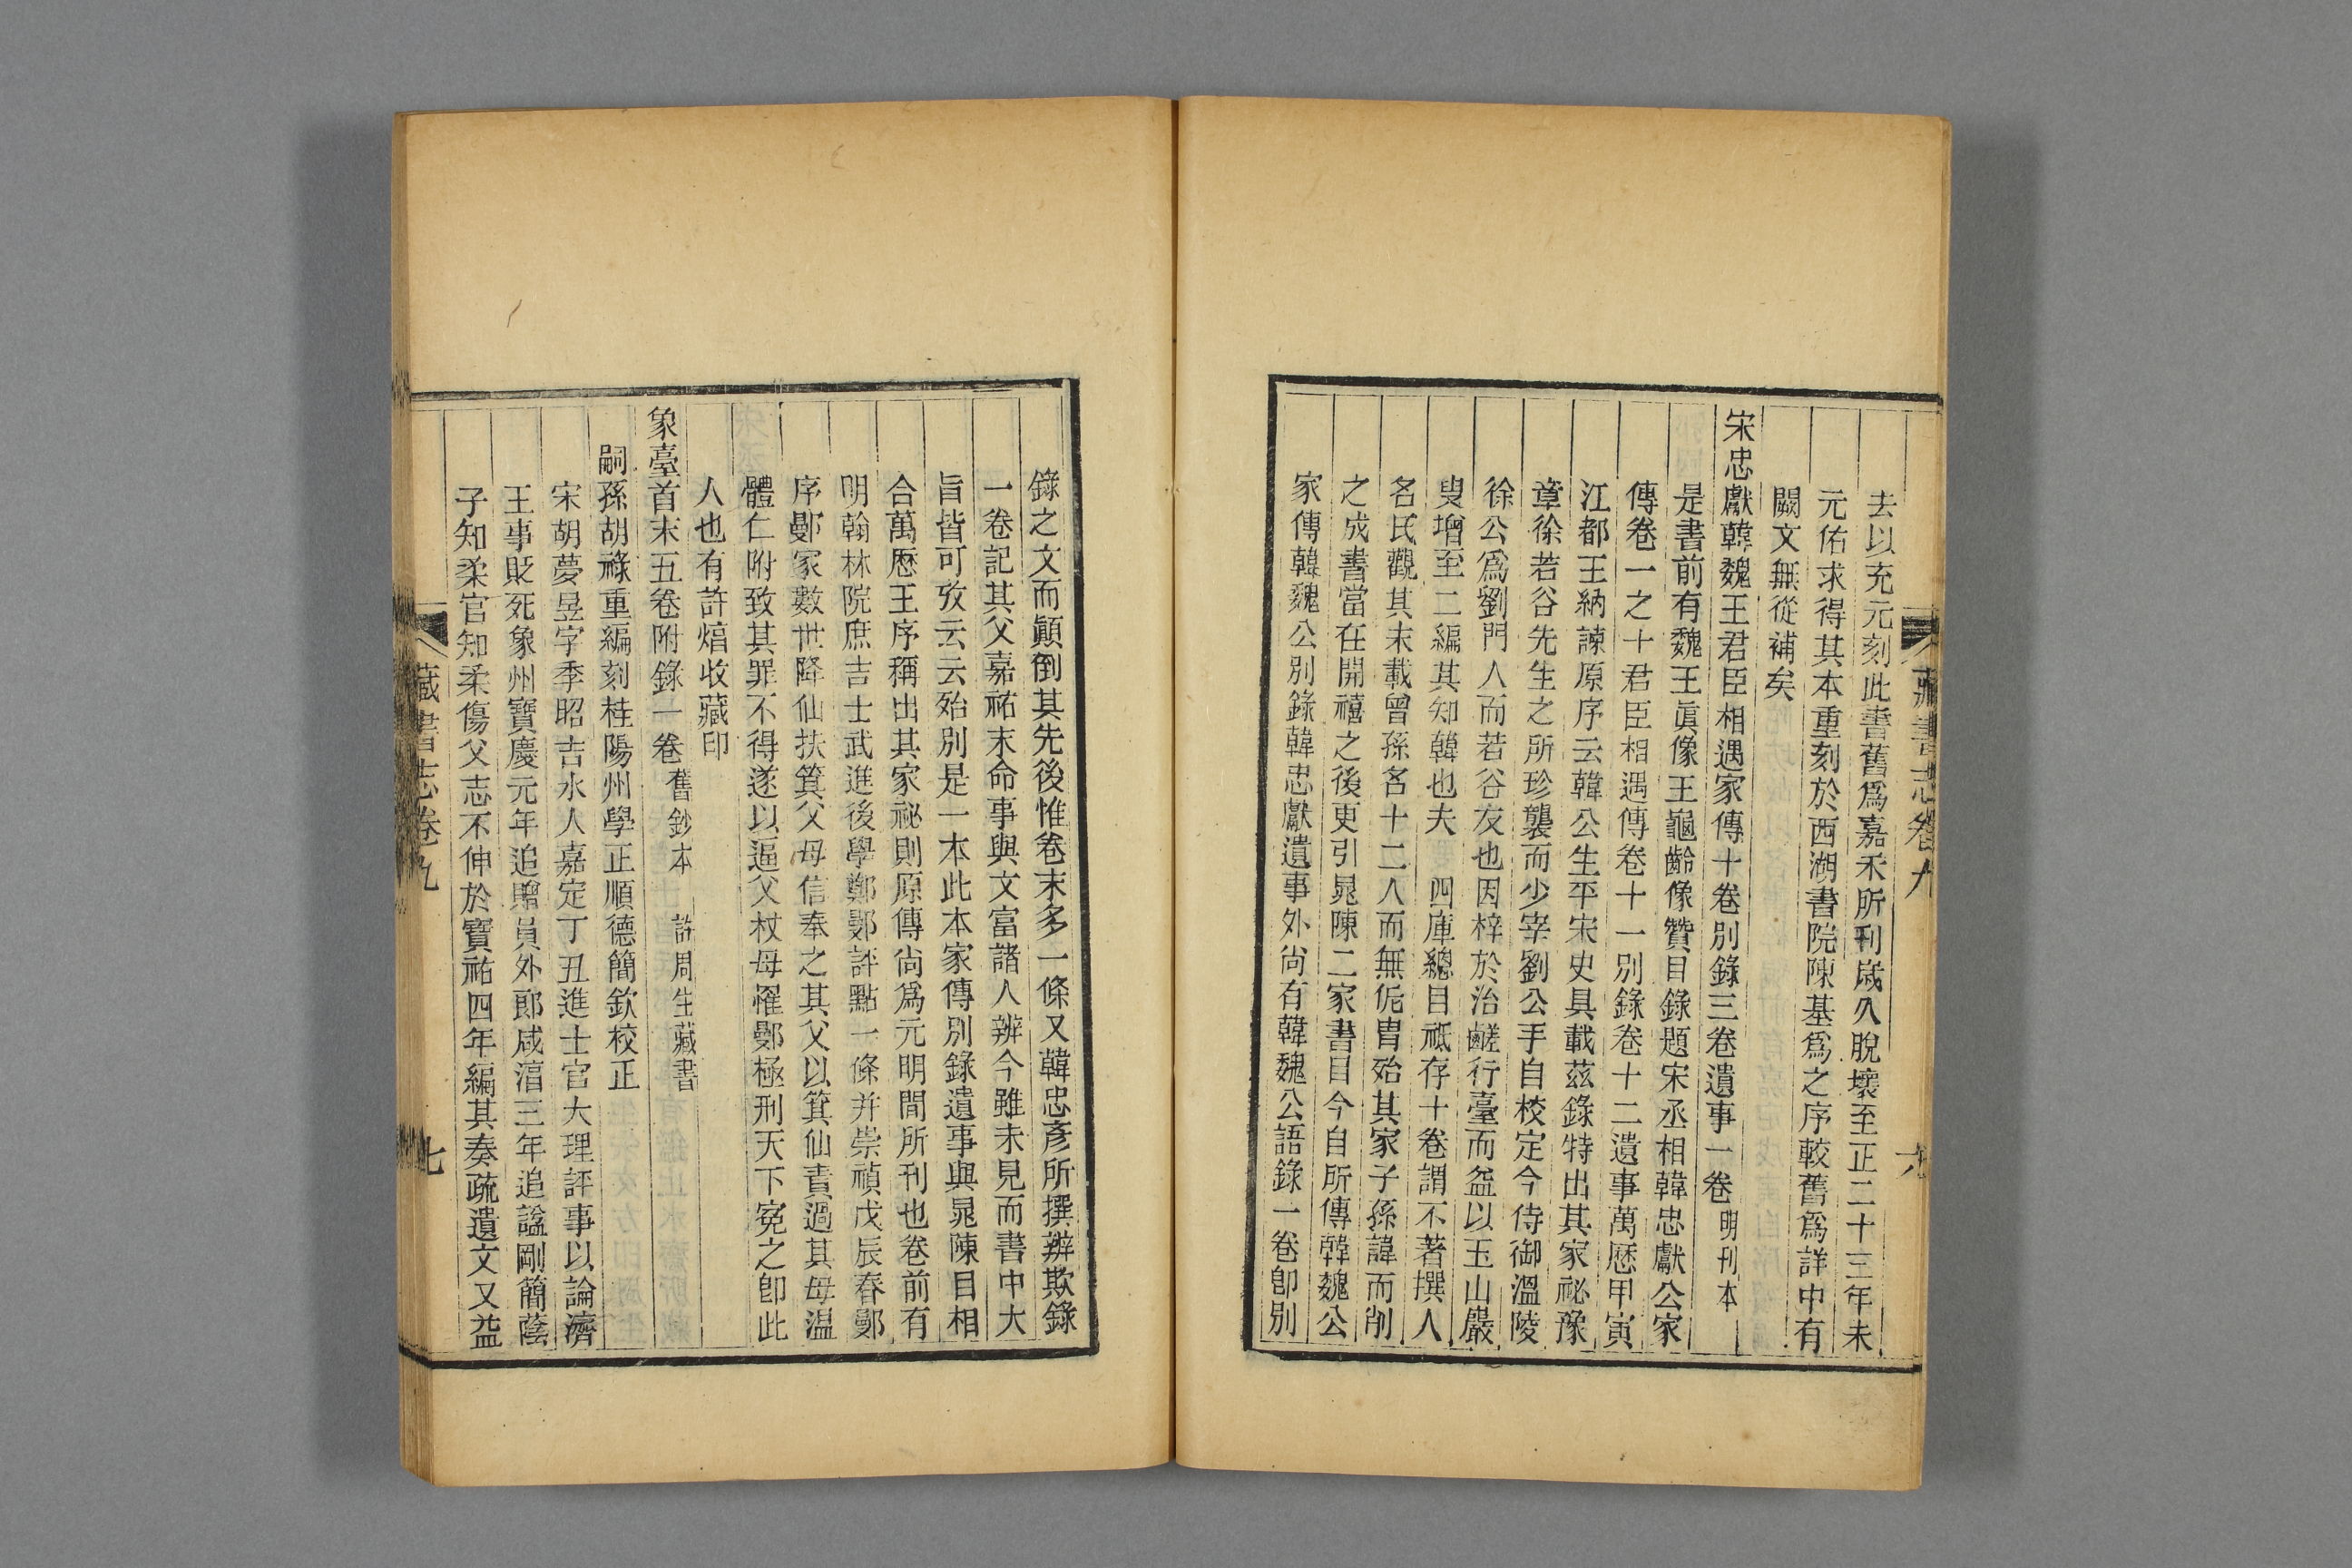 去以充元刻此書舊爲嘉禾所刊歲久脫壞至正二十三年未
元佑求得其本重刻於西湖書院陳基爲之序較舊爲詳中有
闕文無從補矣
宋忠獻韓魏王君臣相遇家傳十卷別錄三卷遺事一卷 明刊本
是書前有魏王眞像王龜齡像贊目錄題宋丞相韓忠獻公家
傳卷一之十君臣相遇傳卷十一別錄卷十二遺事萬歷甲寅
江都王納諫原序云韓公生平宋史具載茲錄特出其家祕豫
章徐若谷先生之所珍襲而少宰劉公手自校定今侍御溫陵
徐公爲劉門人而若谷友也因梓於治鹺行臺而益以玉山嚴
叟增至二編其知韓也夫 四庫總目祗存十卷謂不著撰人
名氏觀其末載曾孫名十二人而無侂胄殆其家子孫諱而削
之成書當在開禧之後更引晁陳二家書目今自所傳韓魏公
家傳韓魏公別錄韓忠獻遺事外尙有韓魏公語錄一卷卽別
錄之文而顚倒其先後惟卷末多一條又韓忠彥所撰辨欺錄
一卷記其父嘉祐末命事與文富諸人辨今雖未見而書中大
旨皆可攷云云殆別是一本此本家傳別錄遺事與晁陳目相
合萬歷王序稱出其家祕則原傳尙爲元明間所刊也卷前有
明翰林院庶吉士武進後學鄭鄤評點一條并崇禎戊辰春鄤
序鄤家數世降仙扶箕父母信奉之其父以箕仙責過其母溫
體仁附致其罪不得遂以逼父杖母罹鄤極刑天下寃之卽此
人也有許焞收藏印
象臺首末五卷附錄一卷 舊鈔本 許周生藏書
嗣孫胡祿重編刻桂陽州學正順德簡欽校正
宋胡夢昱字季昭吉水人嘉定丁丑進士官大理評事以論濟
王事貶死象州寶慶元年追贈員外郎咸淳三年追謚剛簡蔭
子知柔官知柔傷父志不伸於寶祐四年編其奏疏遺文又益
藏書志卷九
七